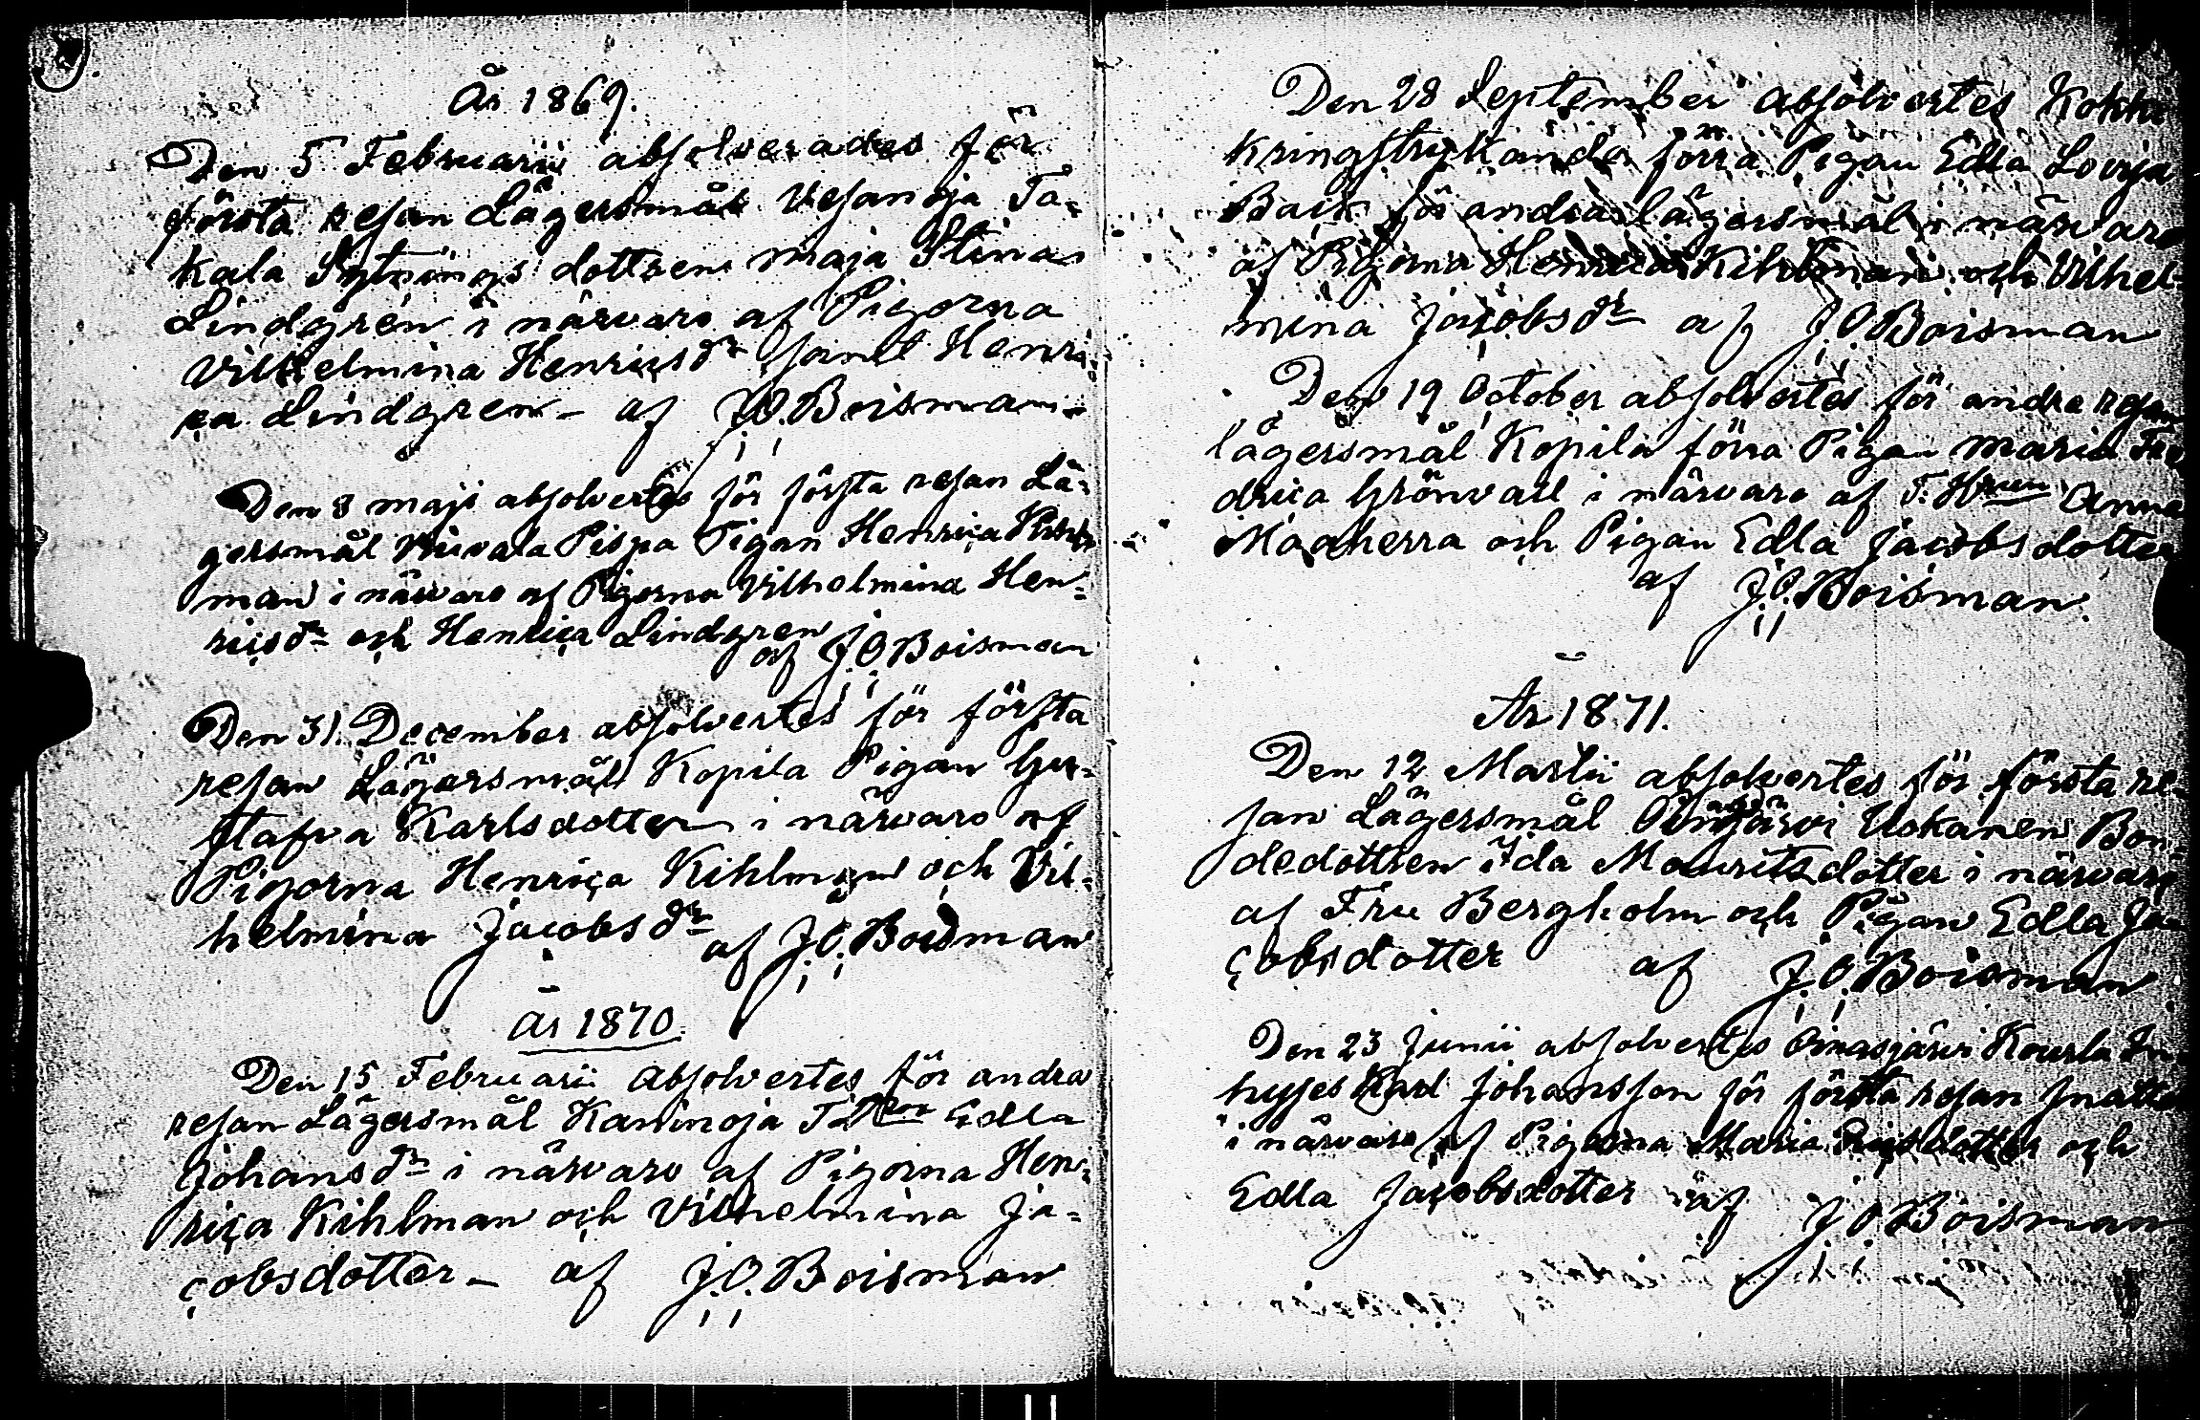 År 1869.
Den 5 Februarii absolverades för
första resan Lägersmål Vesanoja Ta-
kala Sytnings dottren Maja Stina
Lindgren i närvaro af Pigorna
Vilhelmina Henricsdr samt Henri-
ca Lindgren - af J.O. Boisman
Den 8 maji absolvertes för första resan Lä-
gersmål Pispa Pigan Henrica Kihl-
man i närvaro af Pigorna Vilhelmina Hen-
ricsdr och Henrica Lindgren
af J.O. Boisman
Den 31. December absolvertes för första
resan Lägersmål Kopila Pigan Gu-
stafva Karlsdotter i närvaro af
Pigorna Henrica Kihlman och Vil-
helmina Jacobsdr af J.O. Boisman
År 1870.
Den 15 Februarii absolvertes för andra
resan Lägersmål Kaninoja Edla
Johansdr i närvaro af Pigorna Hen-
rica Kihlman och Vilhelmina Ja-
cobsdotter - af J.O. Boisman
Den 28 September absolvertes Kokki
kringstrykande förra Pigan Edla Lovisa
Back för andra lägersmål i närvaro
af Pigorna Henrica Kihlman och Vilhel-
mina Jacobsdr af J.O. Boisman
Den 19 October absolvertes för andra resan
lägersmål Kopila förra Pigan Maria Fre
drica Grönvall i närvaro af Anna
Maaherra och Pigan Edla Jacobsdotter
af J.O. Boisman.
År 1871.
Den 12 Martii absolvertes för första re-
san Lägersmål Uskanen Bon-
dedottren Ida Mauritsdotter i närvaro
af Fru Bergholm och Pigan Edla Ja-
cobsdotter af J.O. Boisman
Den 23 Junii absolvertes Oinasjärvi Kourla In-
hyses Karl Johansson för första resan snatteri
i närvaro af Pigorna Maria och
Edla Jacobsdotter af J.O. Boisman